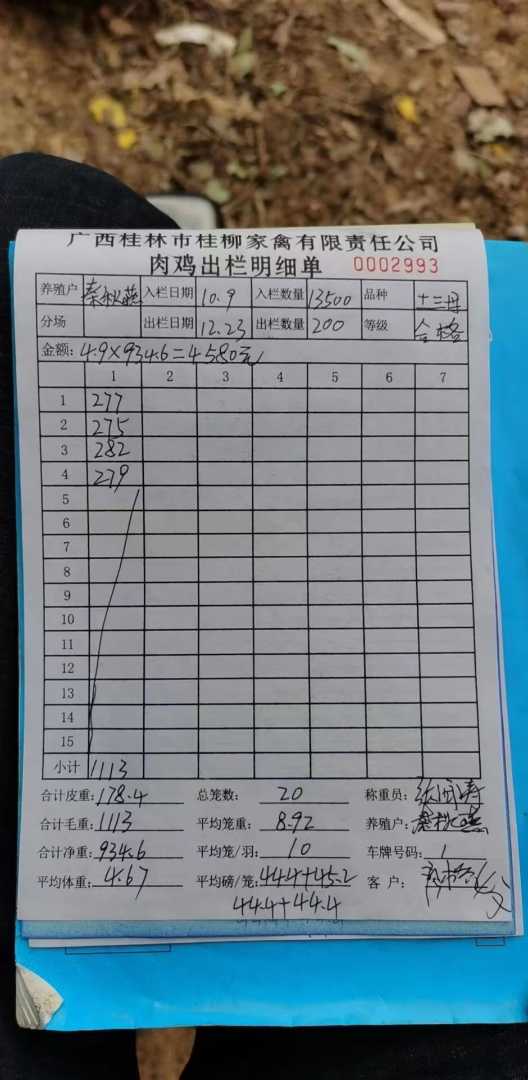 广西桂林市桂柳家禽有限责任公司
肉鸡出栏明细单 0002993
养殖户 秦秋燕 入栏日期 10.9 入栏数量 13500 品种
分场 出栏日期 12.23 出栏数量 200 等级 合格
金额: 4.9×934.6=4580元
1 2 3 4 5 6 7
1 277
2 275
3 282
4 279
5
6
7
8
9
10
11
12
13
14
15
小计 1113
合计皮重: 178.4 总笼数: 20 称重员:
合计毛重: 1113 平均笼重: 8.92 养殖户: 秦秋燕
合计净重: 934.6 平均笼/羽: 10 车牌号码: 1
平均体重: 4.67 平均磅/笼: 44.4+45.2 客户:
44.4+44.4